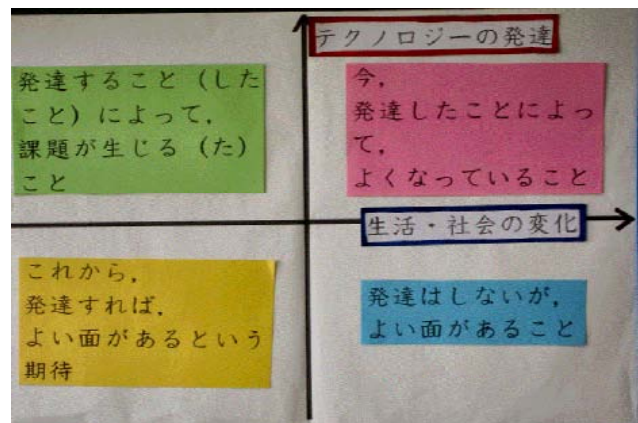 テクノロジーの発達
発達すること（した
こと）によって，
課題が生じる（た）
こと
今，
発達したことによっ
て，
よくなっていること
生活・社会の変化
これから，
発達すれば，
よい面があるという
期待
発達はしないが，
よい面があること